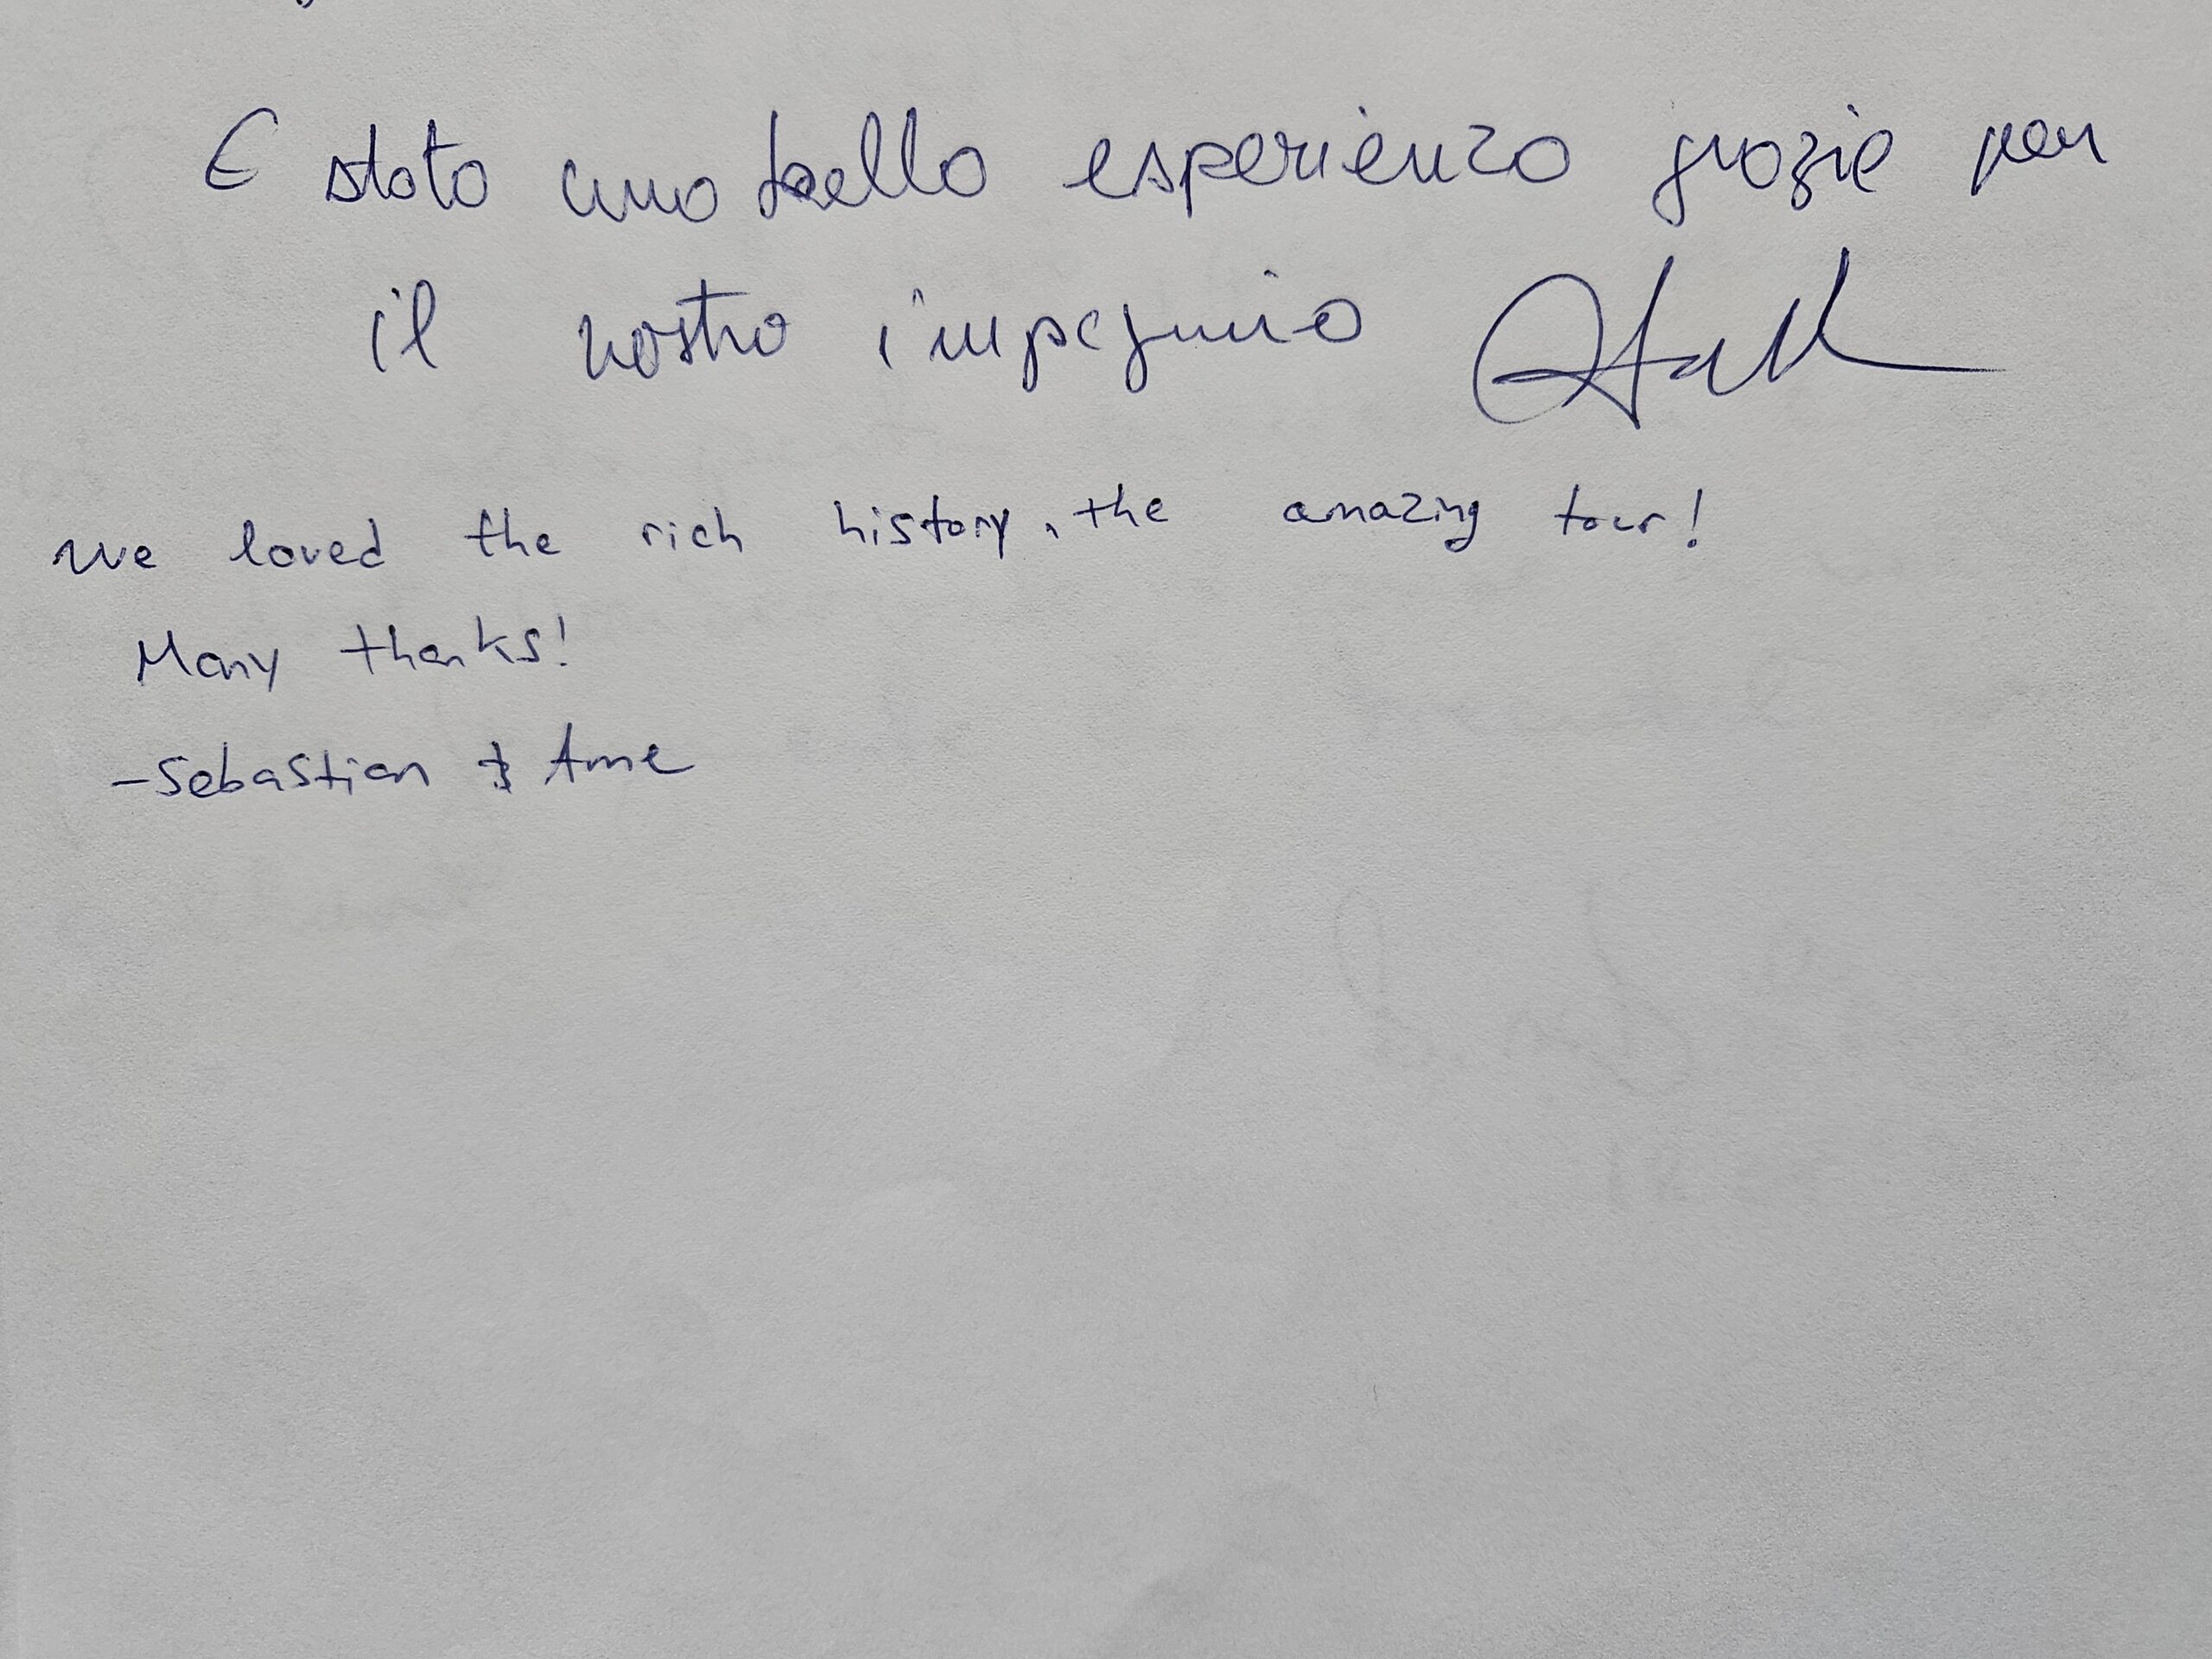 E stato una bella esperienza grazie per
il vostro impegnio
we loved the rich history, the amazing tour!
Many thanks!
-Sebastian & Anne